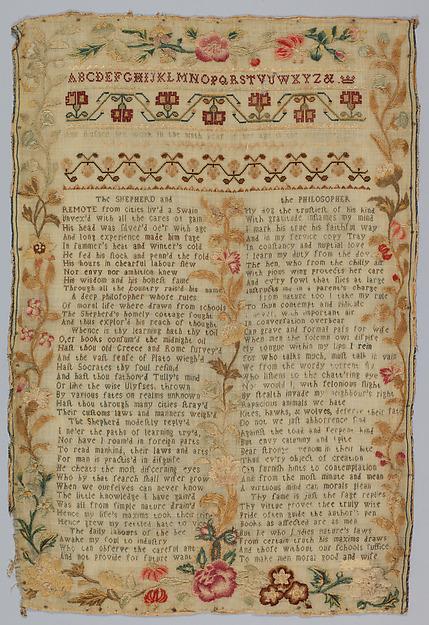 ABCDEFGHIJKLMNOPQRSTVUWXYZ&
her work in the ninth year of her age
The SHEPHERD and
REMOTE from cities liv'd a Swain
Unvex'd with all the cares of gain
His head was silver'd o'er with age
And long experience made him sage
In summer's heat and winter's cold
He fed his flock and penn'd the fold
His hours in chearful labour flew
Nor envy nor ambition knew
His wisdom and his honest fame
Through all the country rais'd his name
A deep philosopher whose rules
Of moral life where drawn from schools
The Shepherd's homely cottage sought
And thus explor'd his reach of thought
Whence is thy learning hath thy toil
O,er books consum'd the midnight oil
Hast thou old Greece and Rome survey'd
And the vast sense of Plato wiegh'd
Hast Socrates thy soul refin'd
And hast thou fathom'd Tully's mind
Or like the wise Ulysses thrown
By various fates on realms unknown
Hast thou through many cities stray'd
Their customs laws and manners weigh'd
The Shepherd modestly reply'd
I ne'er the paths of learning try'd
Nor have I roam'd in foreign parts
To read mankind, their laws and arts
For man is practis'd in disguise
He cheats the most discerning eyes
Who by that search shall wiser grow
When we ourselves can never know
The little knowledge I have gain'd
Was all from simple nature drain'd
Hence my life's maxims took their rise
Hence grew my settled hate to
The daily labours of the bee
Awake my soul to industry
Who can observe the careful ant
And not provide for future want
the PHILOSOPHER
My dog the trustiest of his kind
With gratitude inflames my mind
I mark his true his faithful way
And in my service copy Tray
In constancy and nuptial love
I learn my duty from the dove
The hen, who from the chilly air
With pious wing protects her care
And ev'ry fowl that flies at large
Instructs me in a parent's charge
From nature too I take my rule
To shun contempt and ridicule
I never, with important air
In conversation overbear
Can grave and formal pass for wise
When men the solemn owl despise
My tongue within my lips I rein
For who talks much, must talk in vain
We from the wordy torrent fly
Who listens to the chatt'ring pye
Nor would I, with felonious flight
By stealth invade my neighbour's right
Rapacious animals we hate
Kites, hawks, & wolves, deserve their fate
Do not we just abhorrence find
Against the toad and serpent kind
But envy calumny and spite
Bear stronger venom in their bite
Thus ev'ry object of creation
Can furnish hints to contemplation
And from the most minute and mean
A virtuous mind can morals glean
Thy fame is just the sage replies
Thy virtue proves thee truly wise
Pride often guide the author's pen
Books as affected are as men
But he who studies nature's laws
From certain truth his maxims draws
And those without our schools suffice
To make men moral good and wise